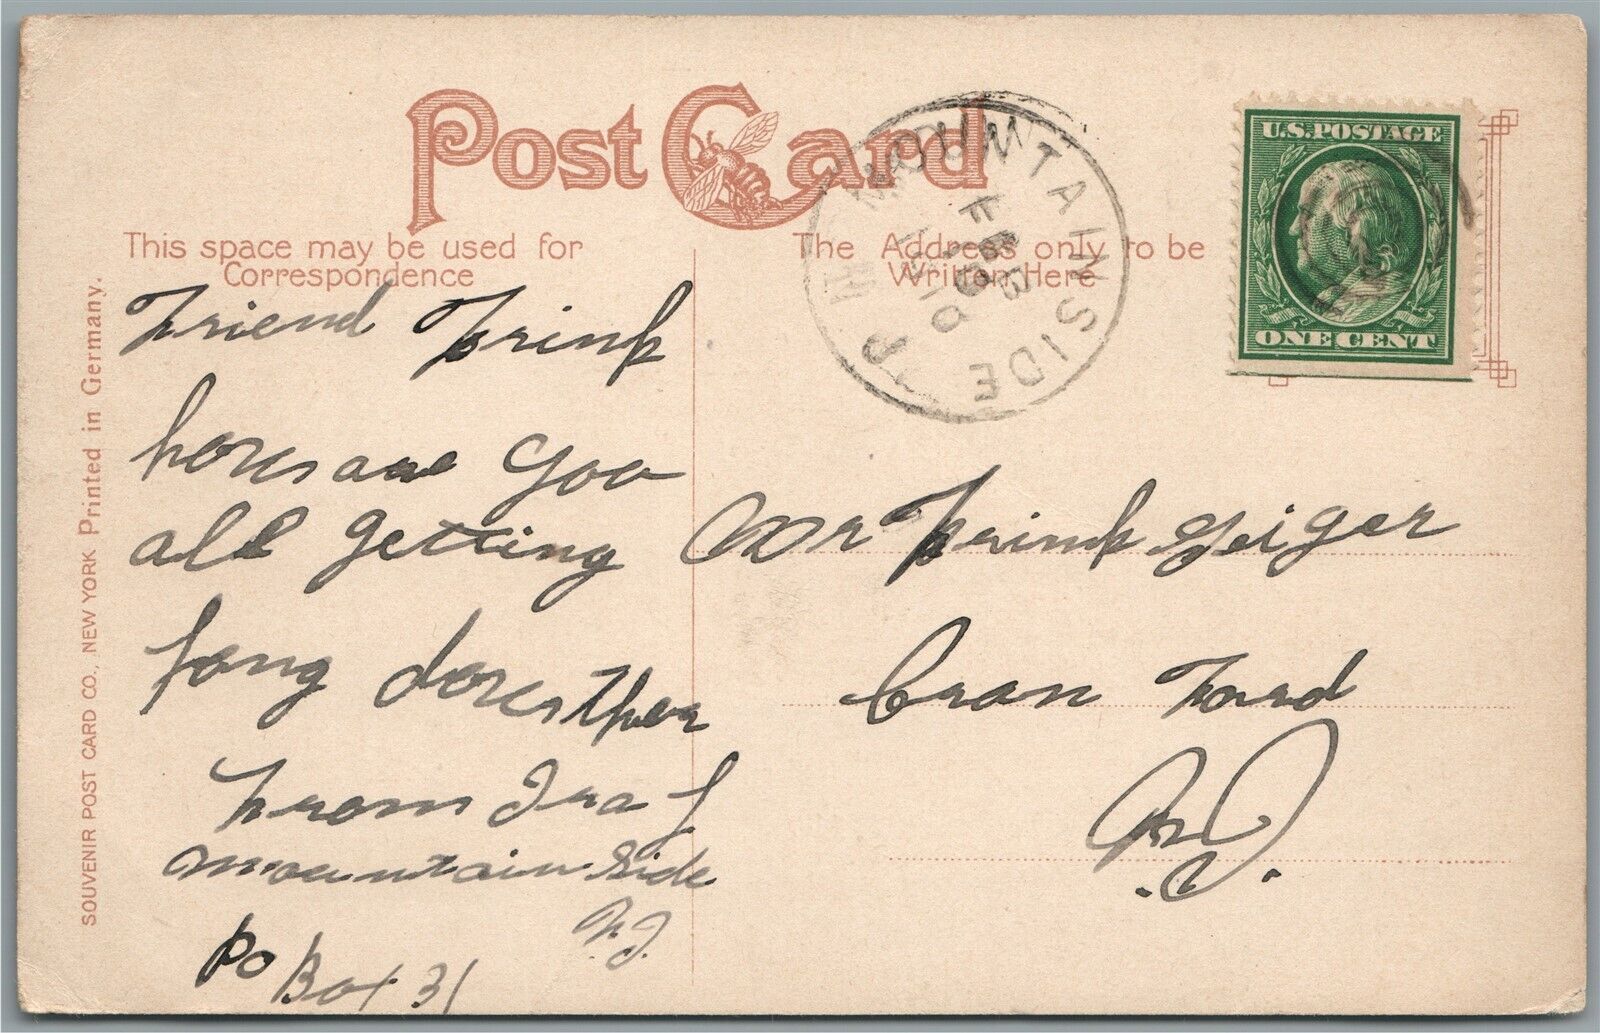 Post Card
This space may be used for
Correspondence
The Address only to be
Written Here
MOUNTAINSIDE
FEB
1910
N J
U.S. POSTAGE
ONE CENT
SOUVENIR POST CARD CO., NEW YORK Printed in Germany.
Friend Frink
are you
all getting
From Ira J
Mountain Side
N.J.
Po Box 31
Mr Frink Geiger
Cran Ford
N.J.